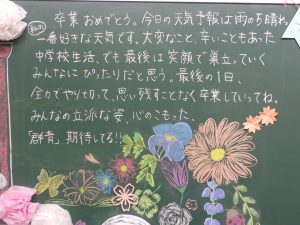 卒業おめでとう。今日の天気予報は雨のち晴れ。
(私の)一番好きな天気です。大変なこと、辛いこともあった
中学校生活、でも最後は笑顔で巣立っていく
みんなにぴったりだと思う。最後の1日、
全力でやり切って、思い残すことなく卒業していってね。
みんなの立派な姿、心のこもった、
「群青」期待してる!!